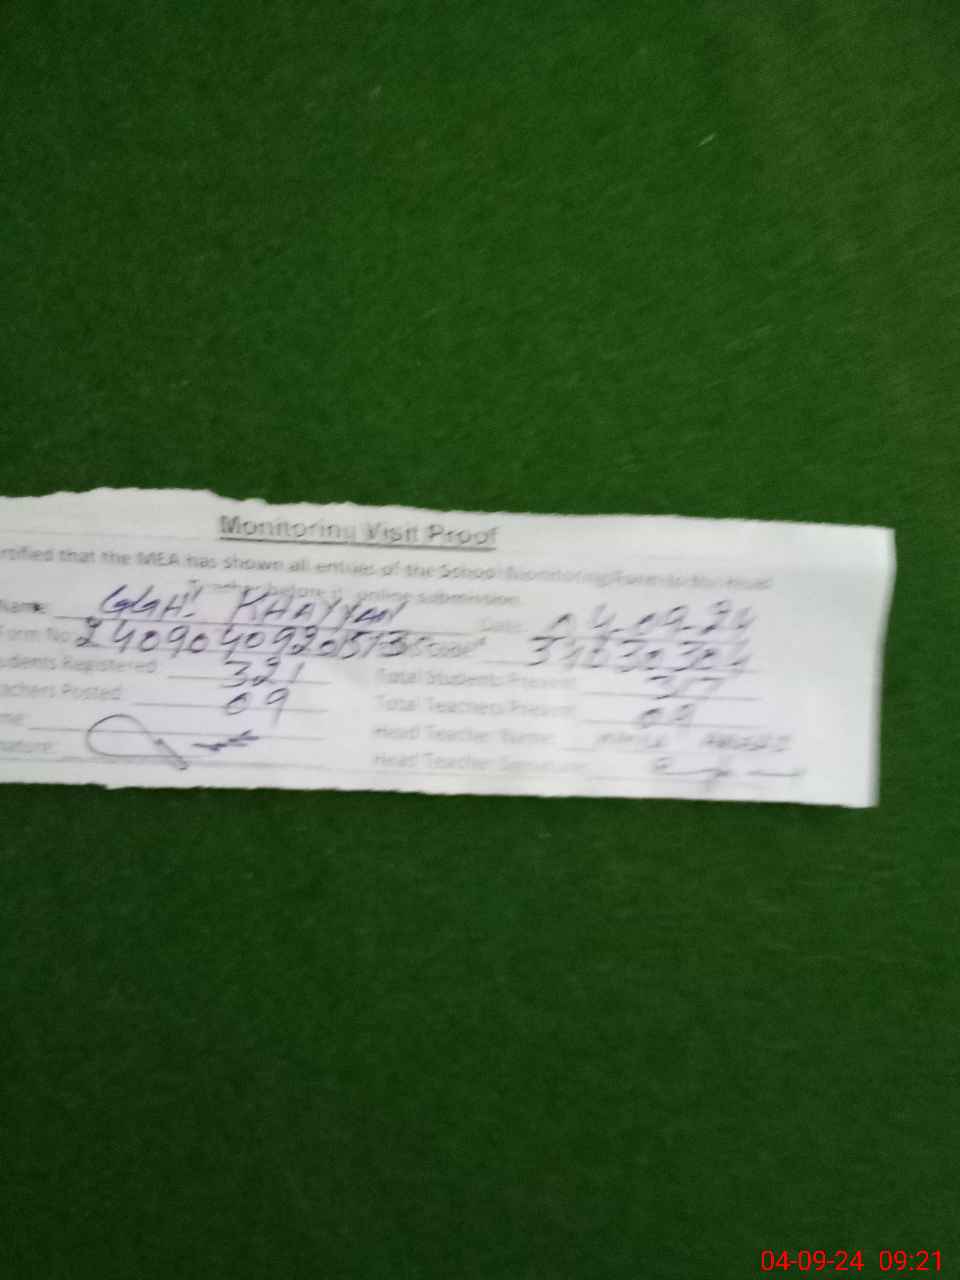 Monitoring Visit Proof
rtified that the MEA has shown all entries of the School Monitoring Form to the Head
Teacher before it online submission.
Name GGHS KHAYYAN Date 04-09-24
Form No 240904092015135 S Code
udents Registered 321 Total Students Present 317
achers Posted 09 Total Teachers Present 09
me: Head Teacher Name:
nature: Head Teacher Signature
04-09-24 09:21